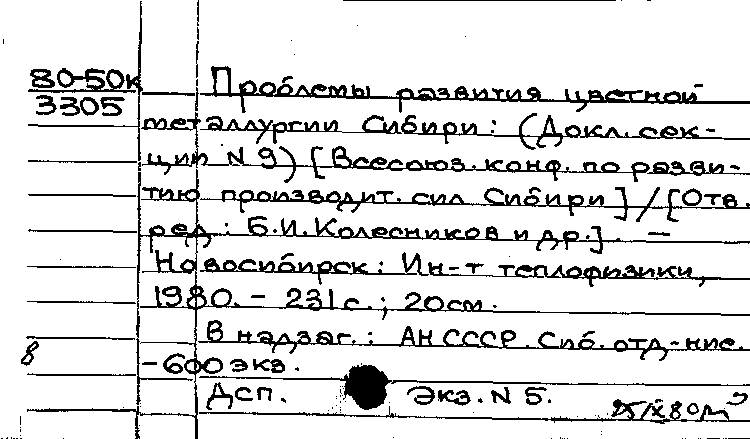 80-50к
3305
Проблемы развития цветной
металлургии Сибири: (Докл. сек-
ции N 9) [Всесоюз. конф. по разви-
тию производит. сил Сибири] / [Отв.
ред.: Б.И. Колесников и др.]. —
Новосибирск: Ин-т теплофизики,
1980. - 231 с.; 20 см.
В надзаг.: АН СССР. Сиб. отд-ние.
8
- 600 экз.
Дсп. Экз. N 5.